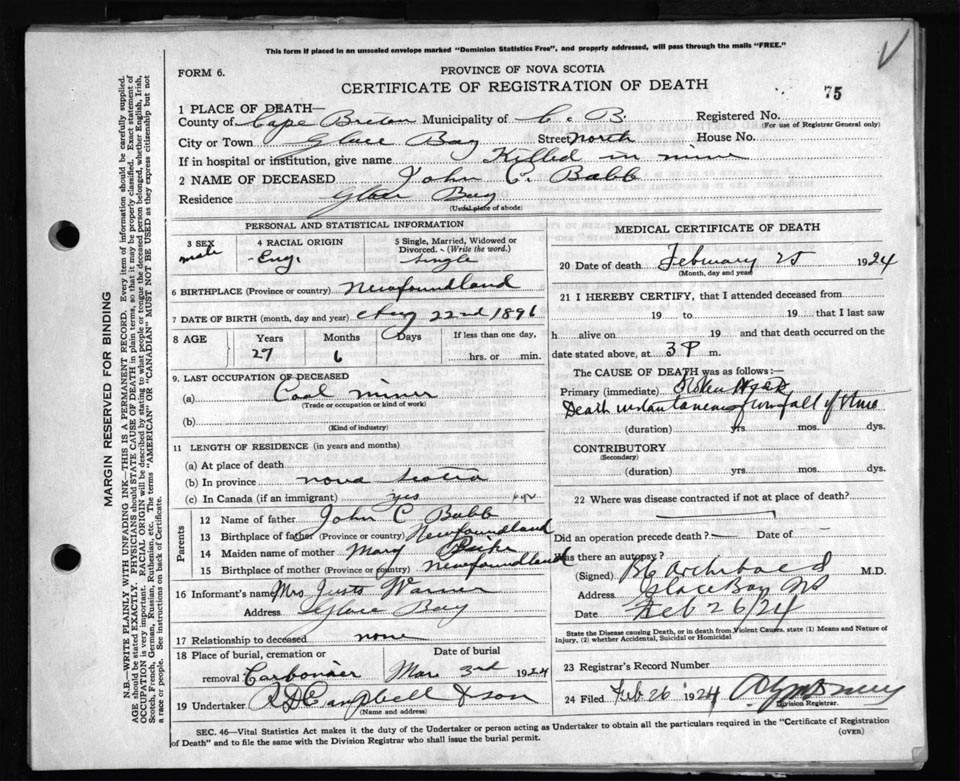 This form if placed in an unsealed envelope marked "Dominion Statistics Free", and properly addressed, will pass through the mails "FREE."
FORM 6.
PROVINCE OF NOVA SCOTIA
CERTIFICATE OF REGISTRATION OF DEATH
75
1 PLACE OF DEATH—
County of Cape Breton Municipality of C. B. Registered No.
(For use of Registrar General only)
City or Town Glace Bay Street North House No.
If in hospital or institution, give name Killed in mine
2 NAME OF DECEASED John C. Babb
Residence Glace Bay
(Usual place of abode)
PERSONAL AND STATISTICAL INFORMATION
3 SEX
male
4 RACIAL ORIGIN
Eng.
5 Single, Married, Widowed or Divorced. - (Write the word.)
Single
6 BIRTHPLACE (Province or country) Newfoundland
7 DATE OF BIRTH (month, day and year) Aug 22nd 1896
8 AGE Years Months Days If less than one day,
27 6 hrs. or min.
9. LAST OCCUPATION OF DECEASED
(a) Coal miner
(Trade or occupation or kind of work)
(b)
(Kind of industry)
11 LENGTH OF RESIDENCE (in years and months)
(a) At place of death
(b) In province nova scotia
(c) In Canada (if an immigrant) yes
Parents
12 Name of father John C Babb
13 Birthplace of father (Province or country) Newfoundland
14 Maiden name of mother Mary
15 Birthplace of mother (Province or country) Newfoundland
16 Informant's name Mrs Warner
Address Glace Bay
17 Relationship to deceased none
18 Place of burial, cremation or removal Date of burial
Carbonear Mar 3rd 1924
19 Undertaker A D Campbell & son
(Name and address)
MEDICAL CERTIFICATE OF DEATH
20 Date of death February 25 1924
(Month, day and year)
21 I HEREBY CERTIFY, that I attended deceased from
19 to 19 that I last saw
h alive on 19 and that death occurred on the
date stated above, at 3 P m.
The CAUSE OF DEATH was as follows:—
Primary (immediate) Broken
Death instantaneous from fall of stone
(duration) yrs. mos. dys.
CONTRIBUTORY
(Secondary)
(duration) yrs. mos. dys.
22 Where was disease contracted if not at place of death?
Did an operation precede death? — Date of
Was there an autopsy?
(Signed) Archibald M.D.
Address Glace Bay NS
Date Feb 26/24
State the Disease causing Death, or in death from Violent Causes, state (1) Means and Nature of Injury, (2) whether Accidental, Suicidal or Homicidal
23 Registrar's Record Number
24 Filed Feb 26 1924
Division Registrar.
SEC. 46—Vital Statistics Act makes it the duty of the Undertaker or person acting as Undertaker to obtain all the particulars required in the "Certificate of Registration of Death" and to file the same with the Division Registrar who shall issue the burial permit.
(OVER)
MARGIN RESERVED FOR BINDING
N.B.—WRITE PLAINLY WITH UNFADING INK—THIS IS A PERMANENT RECORD. Every item of information should be carefully supplied.
AGE should be stated EXACTLY. PHYSICIANS should STATE CAUSE OF DEATH in plain terms, so that it may be properly classified. Exact statement of
OCCUPATION is very important. RACIAL ORIGIN will be described by stating to what people or tongue the deceased person belonged, whether English, Irish,
Scotch, French, German, Russian, Ruthenian, etc. The terms "AMERICAN" OR "CANADIAN" MUST NOT BE USED as they express citizenship but not
a race or people. See instructions on back of Certificate.